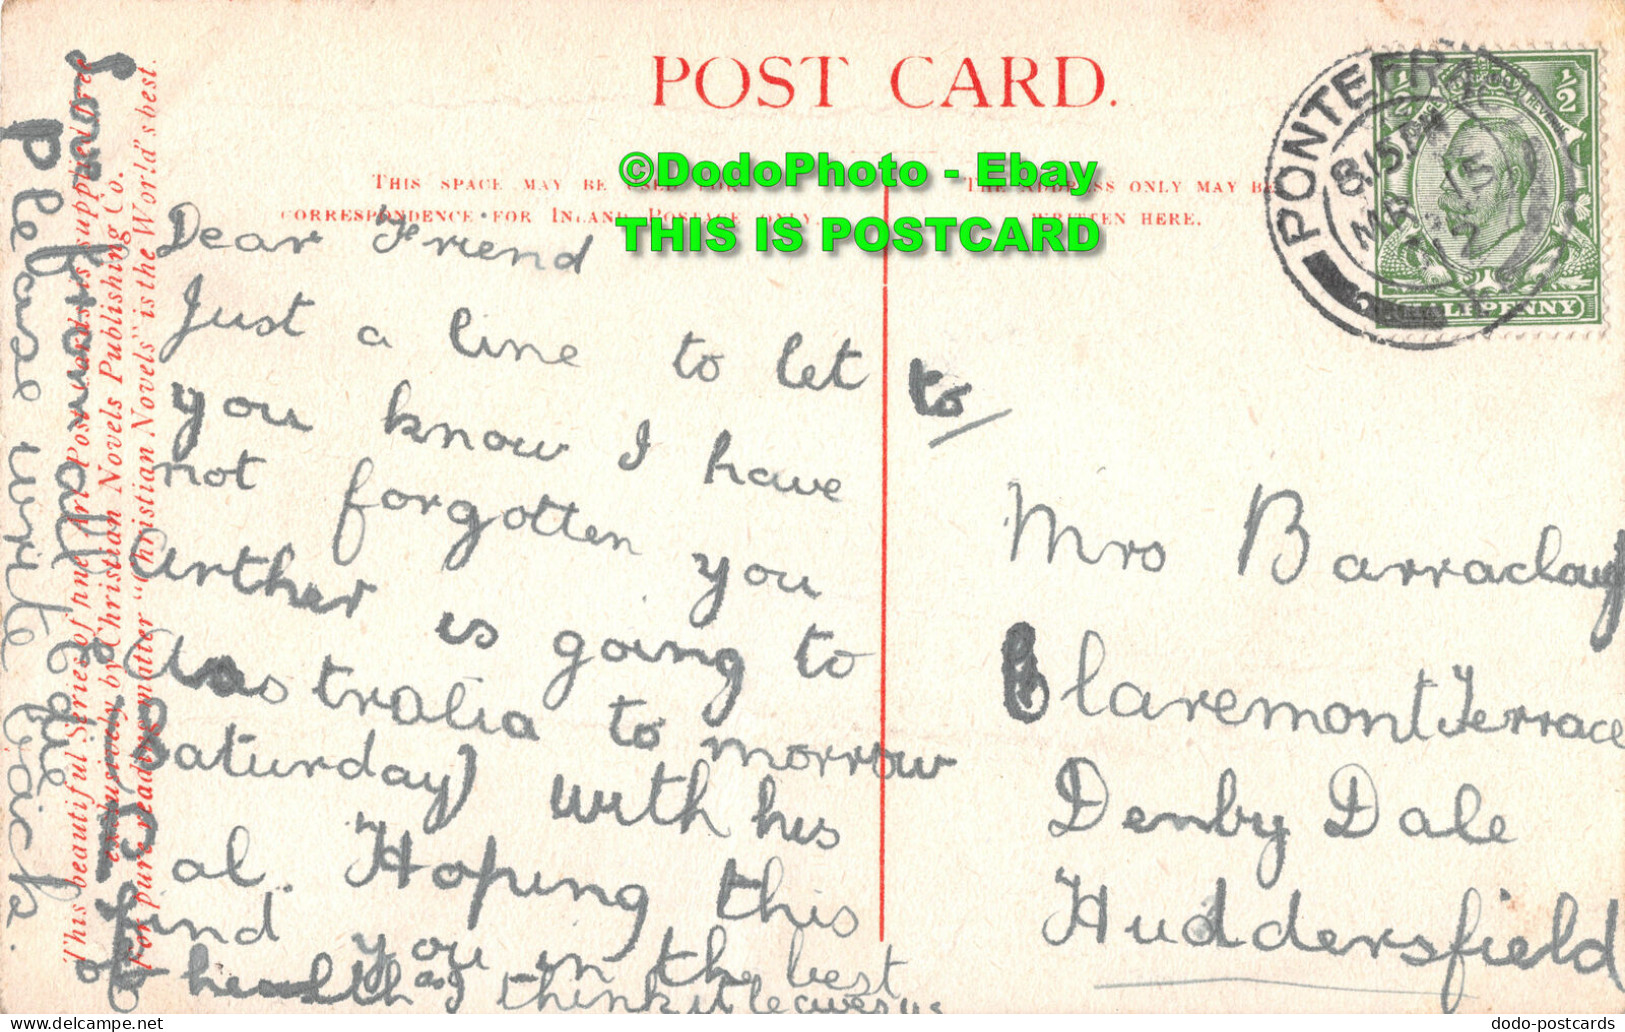 POST CARD.
©DodoPhoto - Ebay
THIS IS POSTCARD
THIS SPACE MAY BE USED FOR
CORRESPONDENCE FOR INLAND POSTAGE ONLY.
THE ADDRESS ONLY MAY BE
WRITTEN HERE.
PONTEFR
8.15 AM
MR 15
12
½ ½
HALFPENNY
Dear Friend
Just a line to let to
you know I have
not forgotten you
Arther is going to
Australia to morrow
(Saturday) with his
al. Hoping this
find you in the best
of health as I think it leaves us
Love from all
Please write back.
Mrs Barraclough
Claremont Terrace
Denby Dale
Huddersfield
This beautiful Series of fine Art Post Cards is supplied free
exclusively by Christian Novels Publishing Co.
For pure reading matter "Christian Novels" is the World's best.
dodo-postcards